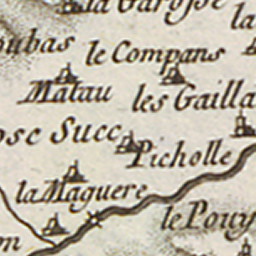 la Garosse
la
oubas
le Compans
Matau
les Gailla
osc Succ
Picholle
la Maguere
le Pouy
on